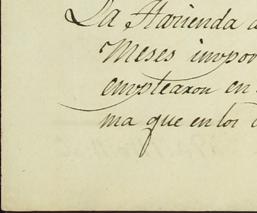 La Hacienda a
Meses impor
emplearon en
ma que en los